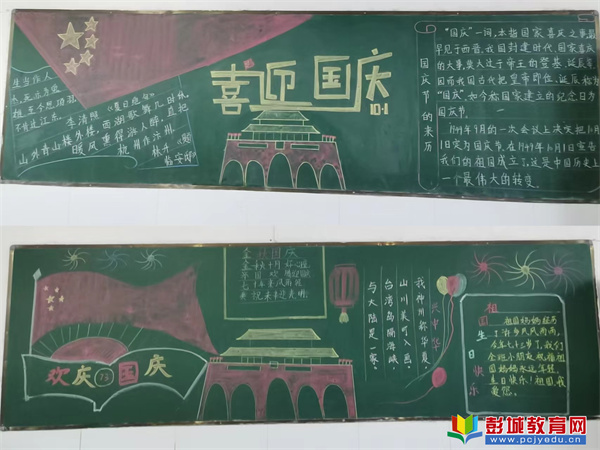 生当作人
杰，死亦为鬼
雄。至今思项羽，
不肯过江东。
李清照《夏日绝句》
山外青山楼外楼，西湖歌舞几时休
暖风熏得游人醉，直把
杭州作汴州。
林升《题
临安邸》
喜迎国庆
10·1
国庆节的来历
"国庆"一词，本指国家喜庆之事，最
早见于西晋。我国封建时代、国家喜庆
的大事，莫大过于帝王的登基、诞辰等。
因而我国古代把皇帝即位、诞辰称为
"国庆"。如今称国家建立的纪念日为
国庆节。
1949年9月的一次会议上决定把10月
1日定为国庆节。在1949年10月1日宣告
我们的祖国成立了。这是中国历史上
一个最伟大的转变。
欢庆73国庆
我神州，称华夏，
山川美，可入画。
台湾岛，隔海峡，
与大陆，是一家。
庆中华
祖国生日快乐
祖国妈妈经历
了许多风风雨雨，
今年七十三岁了，我们
全班小朋友祝福祖
国妈妈永远年轻，
生日快乐！祖国，我
爱您。
彭城教育网
www.pcjyedu.cn